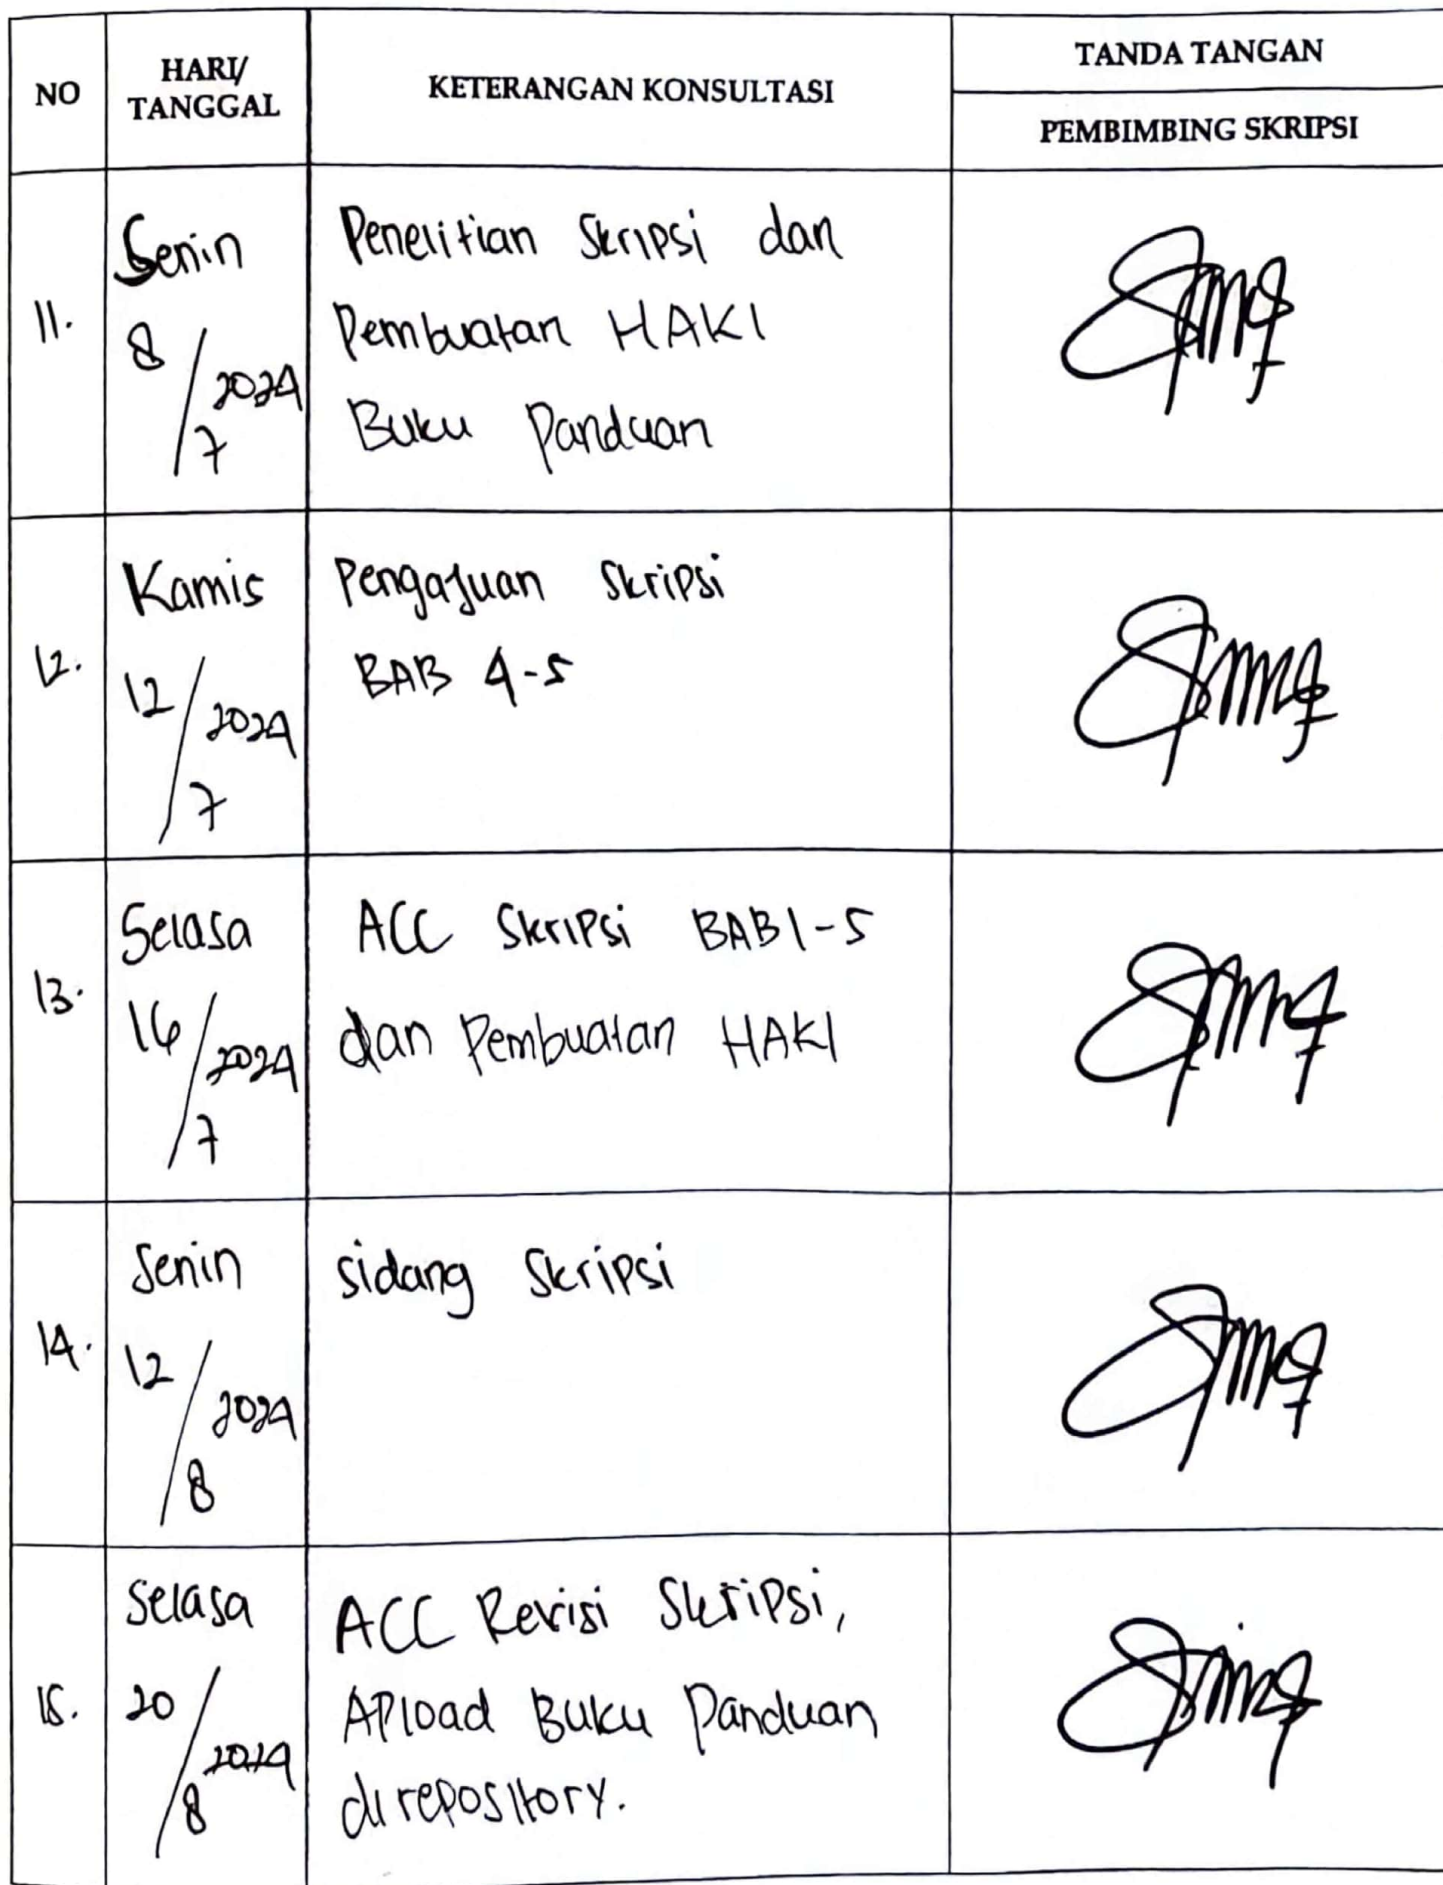 NO
HARI/
TANGGAL
KETERANGAN KONSULTASI
TANDA TANGAN
PEMBIMBING SKRIPSI
11.
Senin
8/7 2024
Penelitian Skripsi dan
Pembuatan HAKI
Buku Panduan
12.
Kamis
12/7 2024
Pengajuan Skripsi
BAB 4-5
13.
Selasa
16/7 2024
ACC Skripsi BAB 1-5
dan Pembuatan HAKI
14.
Senin
12/8 2024
sidang Skripsi
15.
Selasa
20/8 2024
ACC Revisi Skripsi,
APload Buku Panduan
di repository.